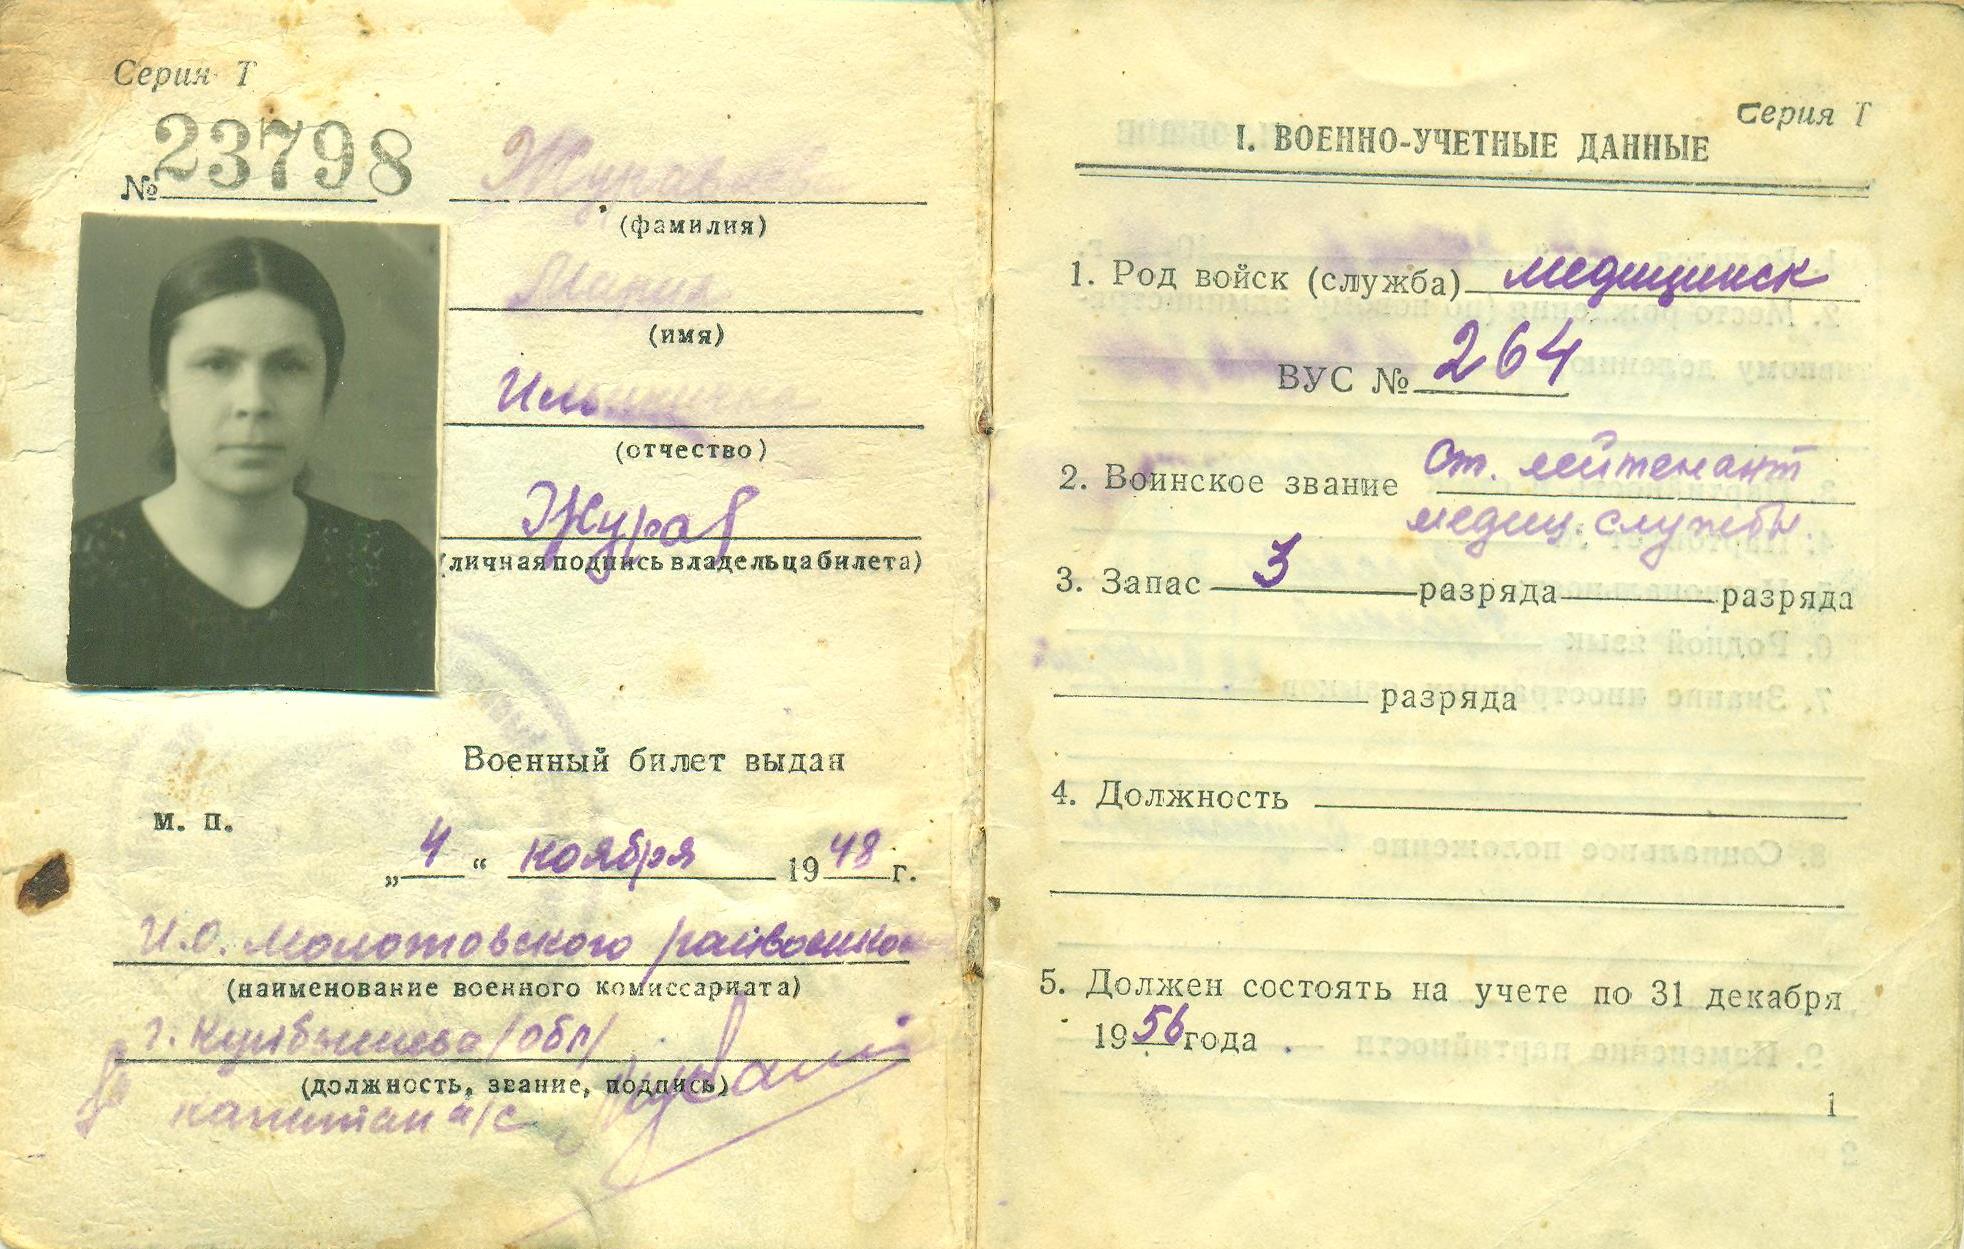 Серия Т
№ 23798
(фамилия)
Мария
(имя)
Ильинична
(отчество)
Журав
(личная подпись владельца билета)
Военный билет выдан
М. П.
„4“ ноября 1948 г.
И.О. Молотовского райвоенком
(наименование военного комиссариата)
г. Куйбышева /обл/
(должность, звание, подпись)
капитан а/с
Серия Т
I. ВОЕННО-УЧЕТНЫЕ ДАННЫЕ
1. Род войск (служба) медицинск
ВУС № 264
2. Воинское звание Ст. лейтенант
медиц. службы.
3. Запас 3 разряда разряда
разряда
4. Должность
5. Должен состоять на учете по 31 декабря
1956 года
1